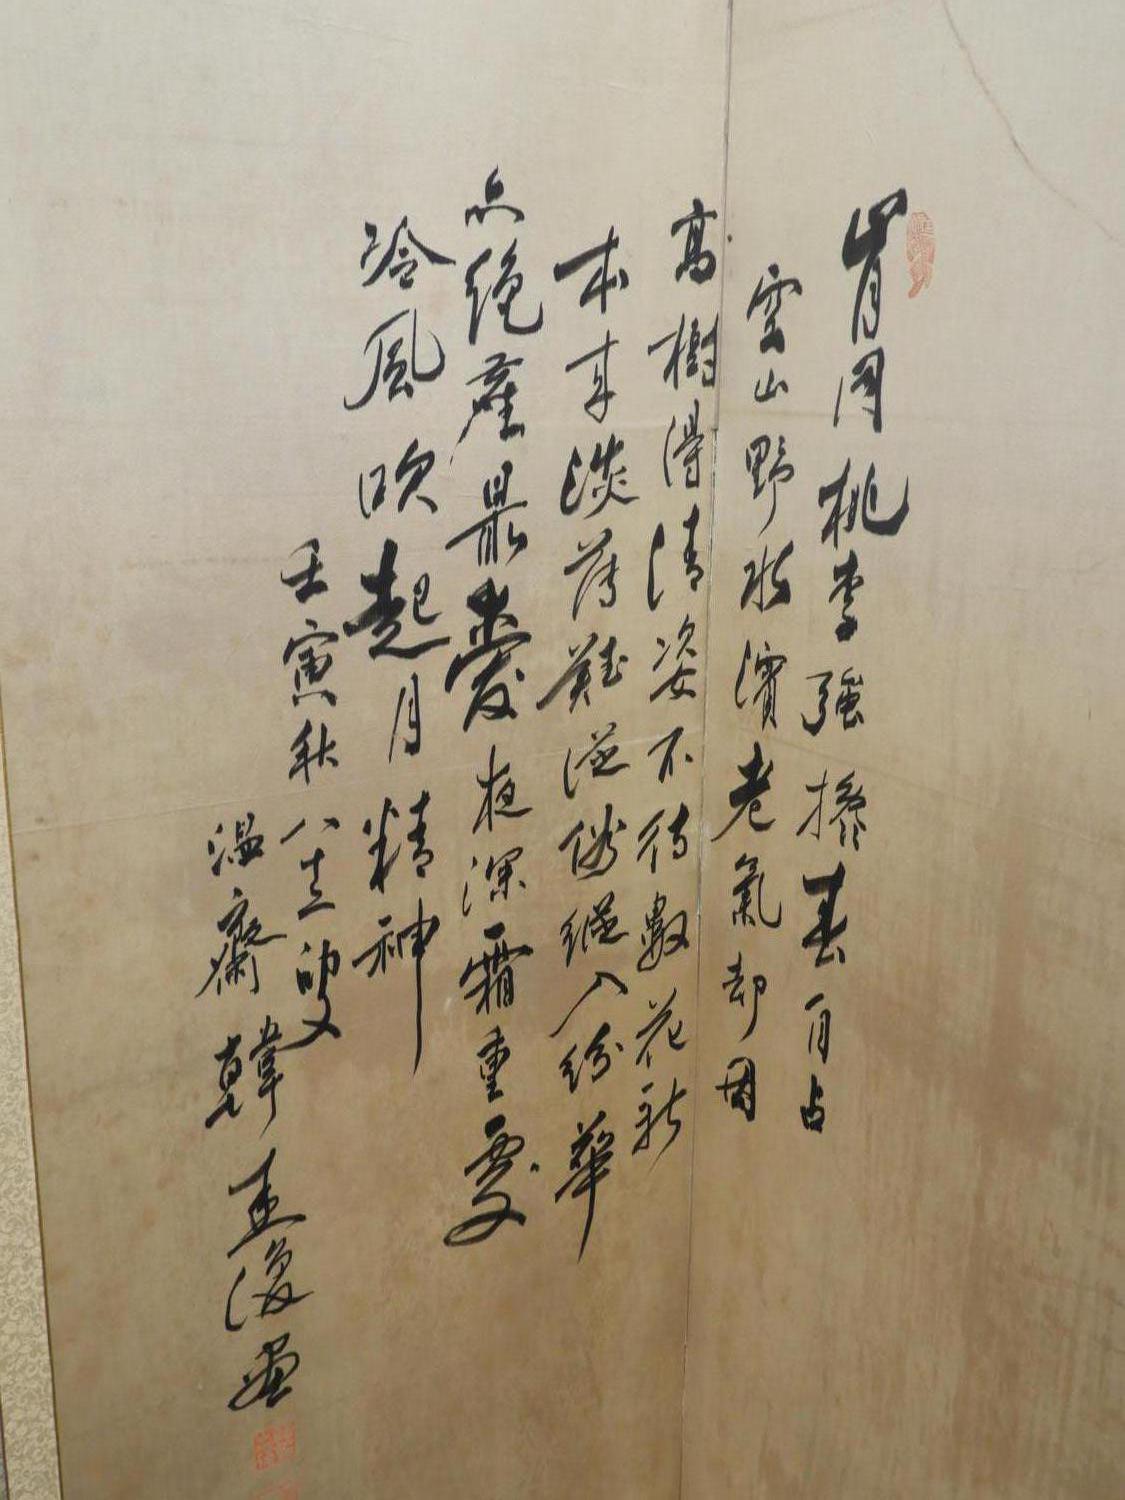 肯同桃李強撩春自占
雲山野水濱老氣却因
高樹得清姿不待數花新
本来淡薄難從俗縱入紛華
亦絕塵最愛夜深霜重處
冷風吹起月精神
壬寅秋八十叟
温齋韓復畫